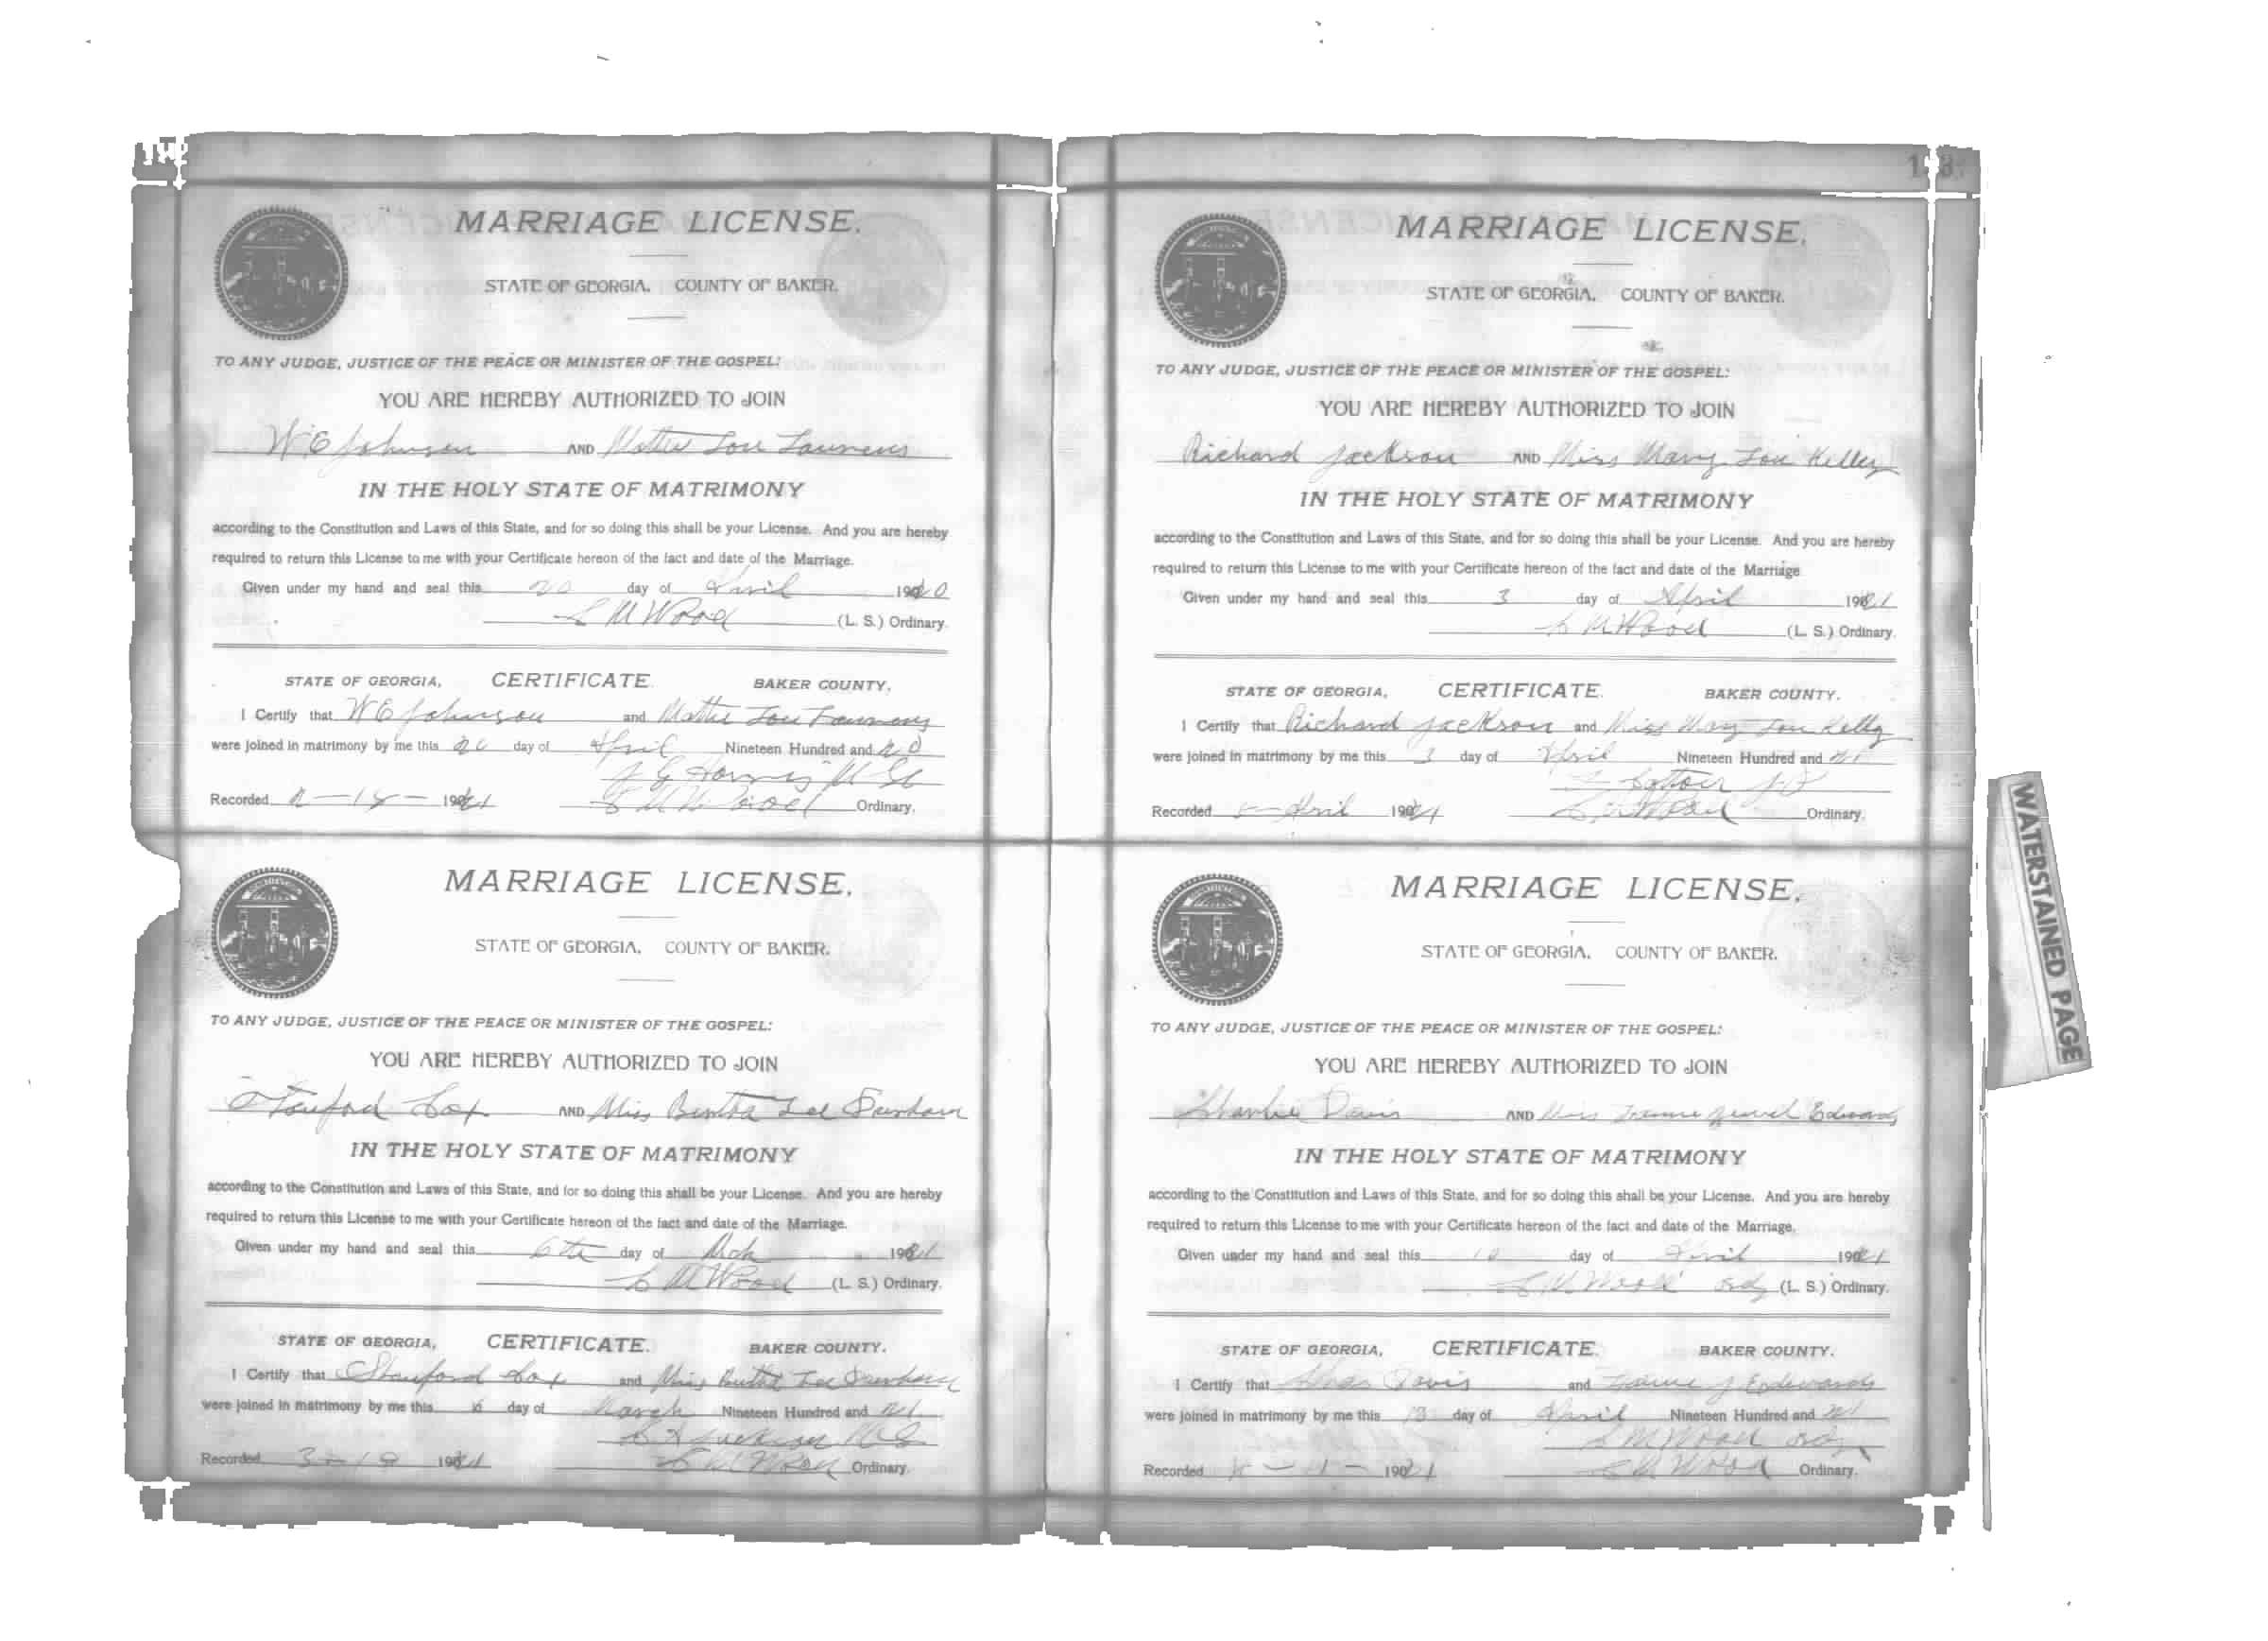 MARRIAGE LICENSE.
STATE OF GEORGIA. COUNTY OF BAKER.
TO ANY JUDGE, JUSTICE OF THE PEACE OR MINISTER OF THE GOSPEL:
YOU ARE HEREBY AUTHORIZED TO JOIN
W E Johnson AND Mattie Lou
IN THE HOLY STATE OF MATRIMONY
according to the Constitution and Laws of this State, and for so doing this shall be your License. And you are hereby
required to return this License to me with your Certificate hereon of the fact and date of the Marriage.
Given under my hand and seal this 20 day of April 1920
L M Wood (L. S.) Ordinary.
STATE OF GEORGIA, CERTIFICATE. BAKER COUNTY.
I Certify that W E Johnson and Mattie Lou
were joined in matrimony by me this 20 day of April Nineteen Hundred and 20
Recorded 1921 Ordinary.
MARRIAGE LICENSE.
STATE OF GEORGIA. COUNTY OF BAKER.
TO ANY JUDGE, JUSTICE OF THE PEACE OR MINISTER OF THE GOSPEL:
YOU ARE HEREBY AUTHORIZED TO JOIN
Stanford Cox AND Miss Bertha Lee
IN THE HOLY STATE OF MATRIMONY
according to the Constitution and Laws of this State, and for so doing this shall be your License. And you are hereby
required to return this License to me with your Certificate hereon of the fact and date of the Marriage.
Given under my hand and seal this 6th day of Mch 1921
L M Wood (L. S.) Ordinary.
STATE OF GEORGIA, CERTIFICATE. BAKER COUNTY.
I Certify that Stanford Cox and Miss Bertha Lee
were joined in matrimony by me this 6 day of March Nineteen Hundred and 21
Recorded 1921 L M Wood Ordinary.
MARRIAGE LICENSE.
STATE OF GEORGIA. COUNTY OF BAKER.
TO ANY JUDGE, JUSTICE OF THE PEACE OR MINISTER OF THE GOSPEL:
YOU ARE HEREBY AUTHORIZED TO JOIN
Richard Jackson AND Miss Mary Lou Kelley
IN THE HOLY STATE OF MATRIMONY
according to the Constitution and Laws of this State, and for so doing this shall be your License. And you are hereby
required to return this License to me with your Certificate hereon of the fact and date of the Marriage
Given under my hand and seal this 3 day of April 1921
L M Wood (L. S.) Ordinary.
STATE OF GEORGIA, CERTIFICATE. BAKER COUNTY.
I Certify that Richard Jackson and Miss Mary Lou Kelly
were joined in matrimony by me this 3 day of April Nineteen Hundred and 21
Recorded April 1921 Ordinary.
MARRIAGE LICENSE.
STATE OF GEORGIA. COUNTY OF BAKER.
TO ANY JUDGE, JUSTICE OF THE PEACE OR MINISTER OF THE GOSPEL:
YOU ARE HEREBY AUTHORIZED TO JOIN
Charlie Davis AND Miss Edwards
IN THE HOLY STATE OF MATRIMONY
according to the Constitution and Laws of this State, and for so doing this shall be your License. And you are hereby
required to return this License to me with your Certificate hereon of the fact and date of the Marriage.
Given under my hand and seal this day of April 1921
L M Wood (L. S.) Ordinary.
STATE OF GEORGIA, CERTIFICATE. BAKER COUNTY.
I Certify that Davis and J
were joined in matrimony by me this day of April Nineteen Hundred and 21
L M Wood Ord
Recorded 1921 L M Wood Ordinary.
WATERSTAINED PAGE